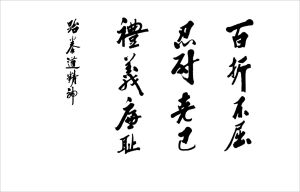 百折不屈
忍耐克己
禮義廉耻
跆拳道精神